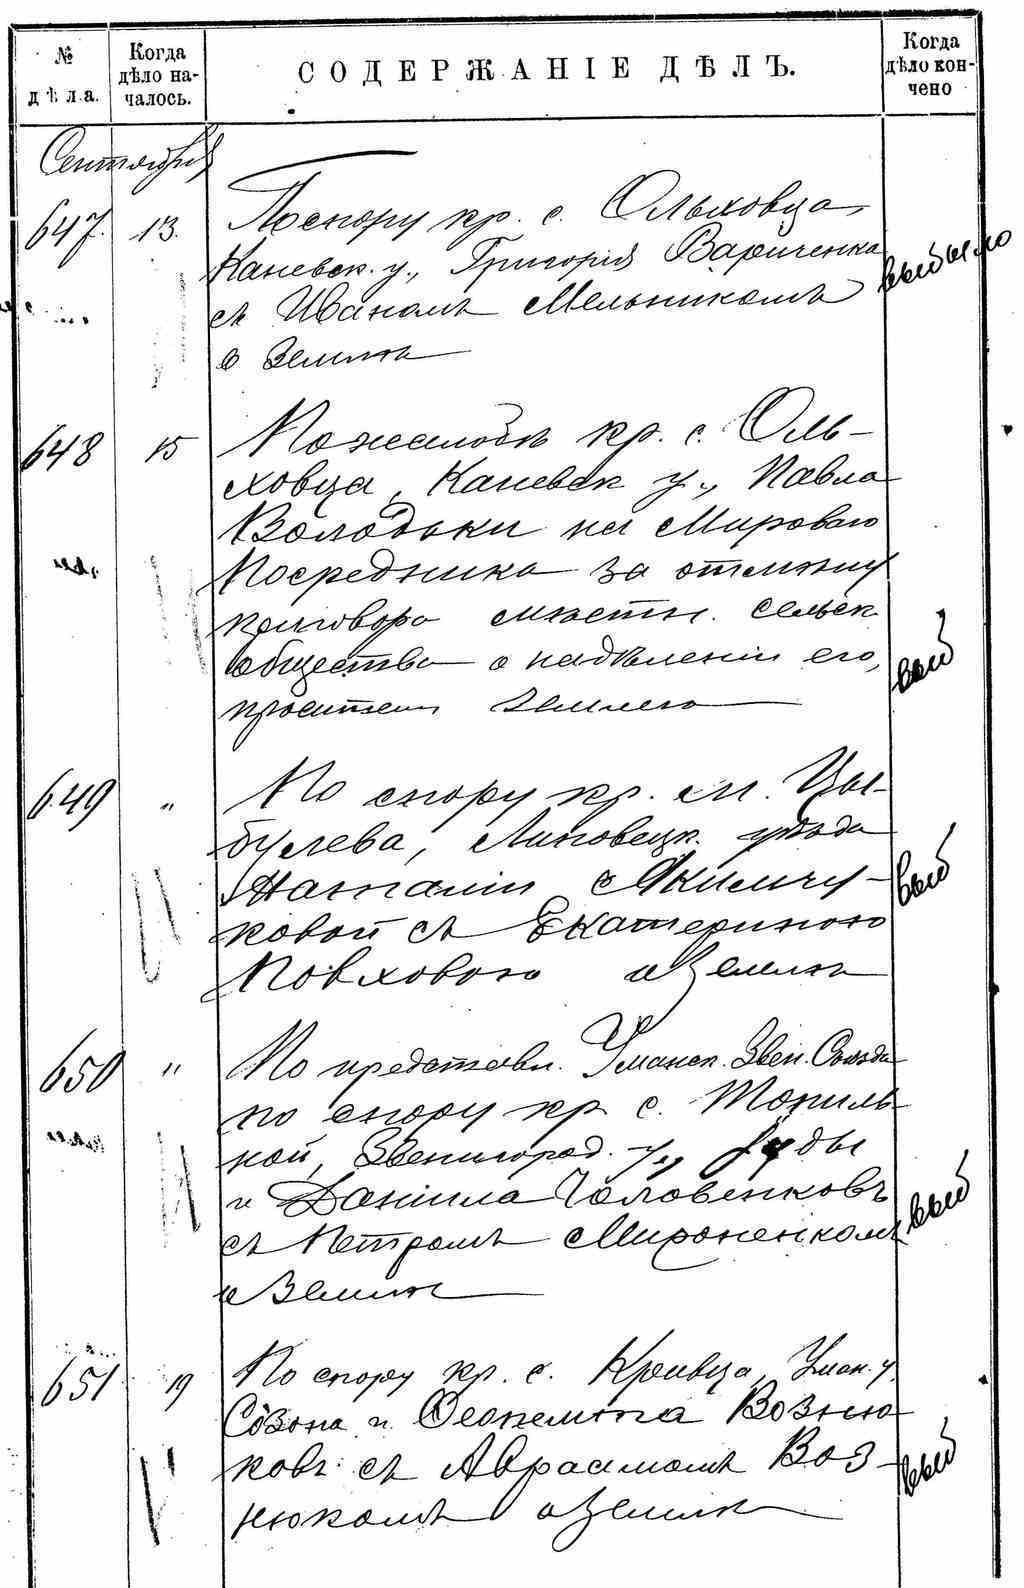 № дѣла.
Когда дѣло на-
чалось.
СОДЕРЖАНІЕ ДѢЛЪ.
Когда дѣло кон-
чено
Сентябрь
647. 13. По спору кр. с. Ольховца,
Каневск. у., Григорія Вариченка
съ Иваномъ Мельникомъ
о землѣ
выбыло
648 15 По жалобѣ кр. с. Оль-
ховца, Каневск у., Павла
Володьки на Мироваго
Посредника за отмѣну
приговора мѣстн. сельск
общества о надѣленіи его,
просителя землею
выб
649 " По спору кр. м. Цы-
булева, Липовецк. уѣзда
Наталіи Якимчу-
ковой съ Екатериною
Повховою о землѣ
выб
650 " По представл. Уманск. Звен. Съѣзда
по спору кр с. Тополь-
ной, Звенигород. у.,
и Даніила Головенковъ
съ Петромъ Мироненкомъ
о землѣ
выб
651 19 По спору кр. с. Кривца, Уман. у.
Созона и Феопемпта Возню-
ковъ съ Авраамомъ Воз-
нюкомъ о землѣ
выб